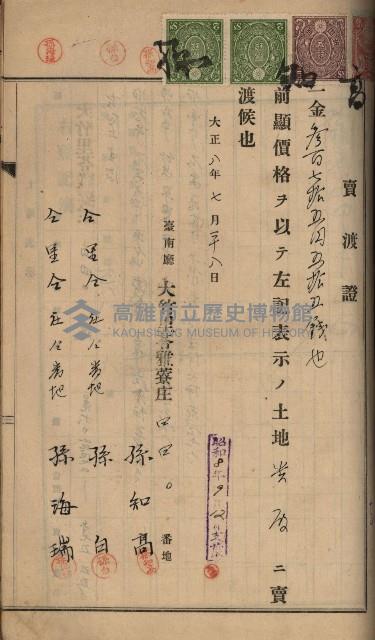 賣渡證
一金參百七拾五円五拾五錢也
前顯價格ヲ以テ左記表示ノ土地貴殿ニ賣
渡候也
大正八年七月二十八日
臺南廳大竹里苓雅藔庄四四〇番地
孫知高
仝里仝庄仝番地
孫白
仝里仝庄仝番地
孫海瑞
高雄市立歷史博物館
KAOHSIUNG MUSEUM OF HISTORY